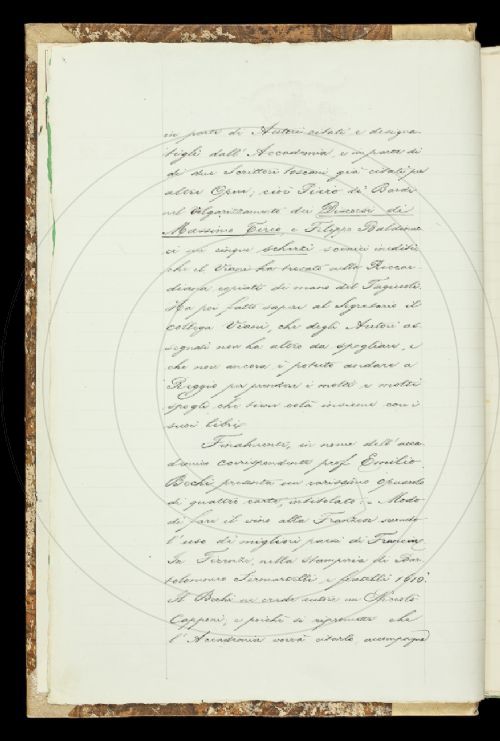 in parte di Autori citati e designa-
tigli dall'Accademia, e in parte di
di due Scrittori toscani già citati per
altre Opere; cioè Piero de' Bardi
nel Volgarizzamento dei Discorsi di
Massimo Tirio, e Filippo Baldinuc-
ci in cinque scherzi scenici inediti,
che il Viani ha trovato nella Riccar-
diana copiati di mano del
Ha poi fatto sapere al Segretario il
collega Viani, che degli Autori as-
segnati non ha altro da spogliare, e
che non ancora è potuto andare a
Reggio per prendere i molti e molti
spogli che tiene colà insieme con i
suoi libri.
Finalmente, in nome dell'acca-
demico corrispondente prof. Emilio
Bechi presenta un rarissimo opuscolo
di quattro carte, intitolato: - Modo
di fare il vino alla Franzese secondo
l'uso de' migliori paesi di Francia.
In Firenze, nella stamperia di Bar-
tolommeo Sermartelli e fratelli 1610.
Il Bechi ne crede autore un Niccolò
Capponi, e poichè si ripromette che
l'Accademia vorrà citarlo, accompagna